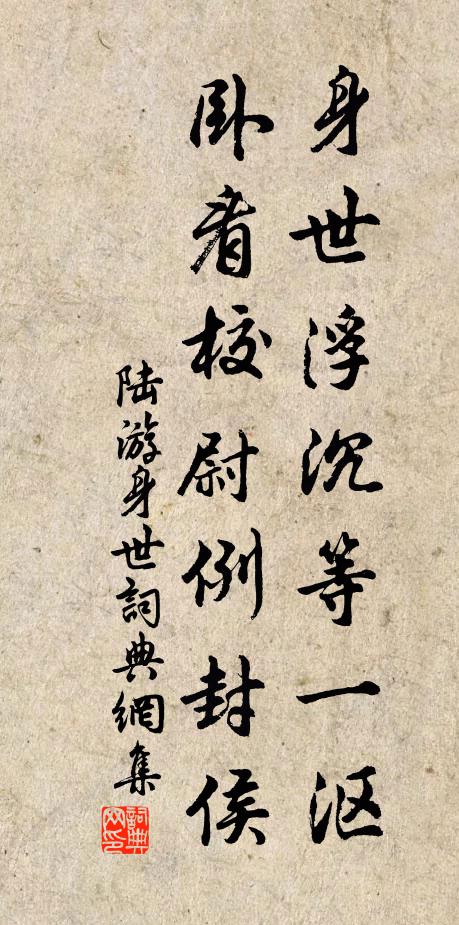 身世浮沉等一沤
卧看校尉例封侯
陆游身世詞典網集
詞典网印